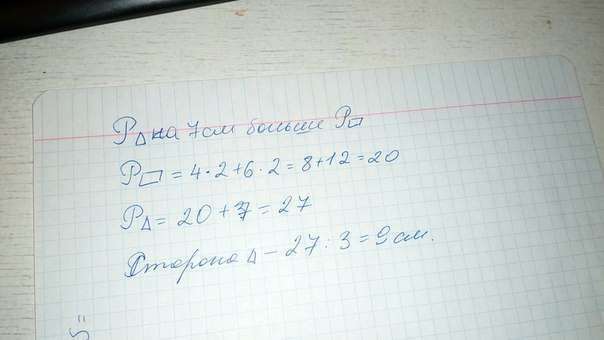 P△ на 7см больше P▭
P▭ = 4·2+6·2=8+12=20
P△ = 20+7=27
Сторона △ – 27:3=9см.
5=